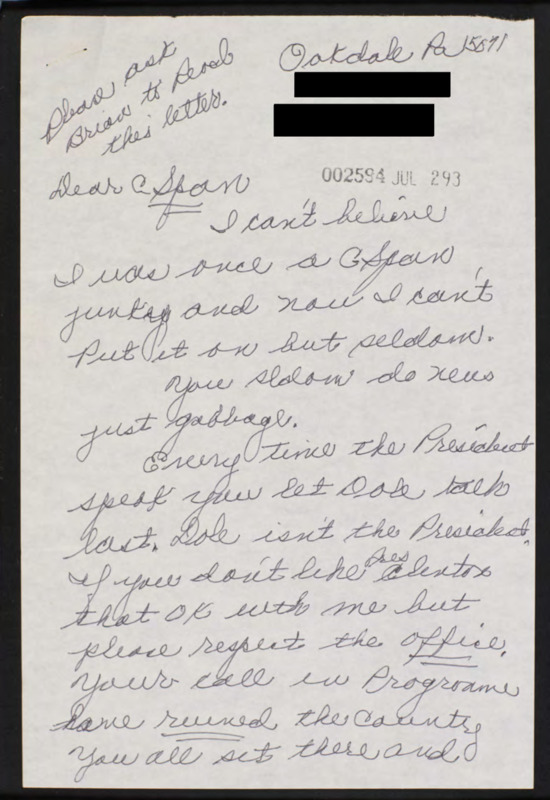 Oakdale Pa 15071
Please ask
Brian to read
this letter.
002594 JUL 293
Dear C Span
I can't believe
I was once a C Span
junkey and now I can't
Put it on but seldom.
You sldom do news
just gabbage.
Every time the President
speak you let Dole talk
last. Dole isn't the President.
If you don't like Pres Clinton
that OK with me but
please respect the office.
Your call in Programe
have ruined the country
You all sit there and